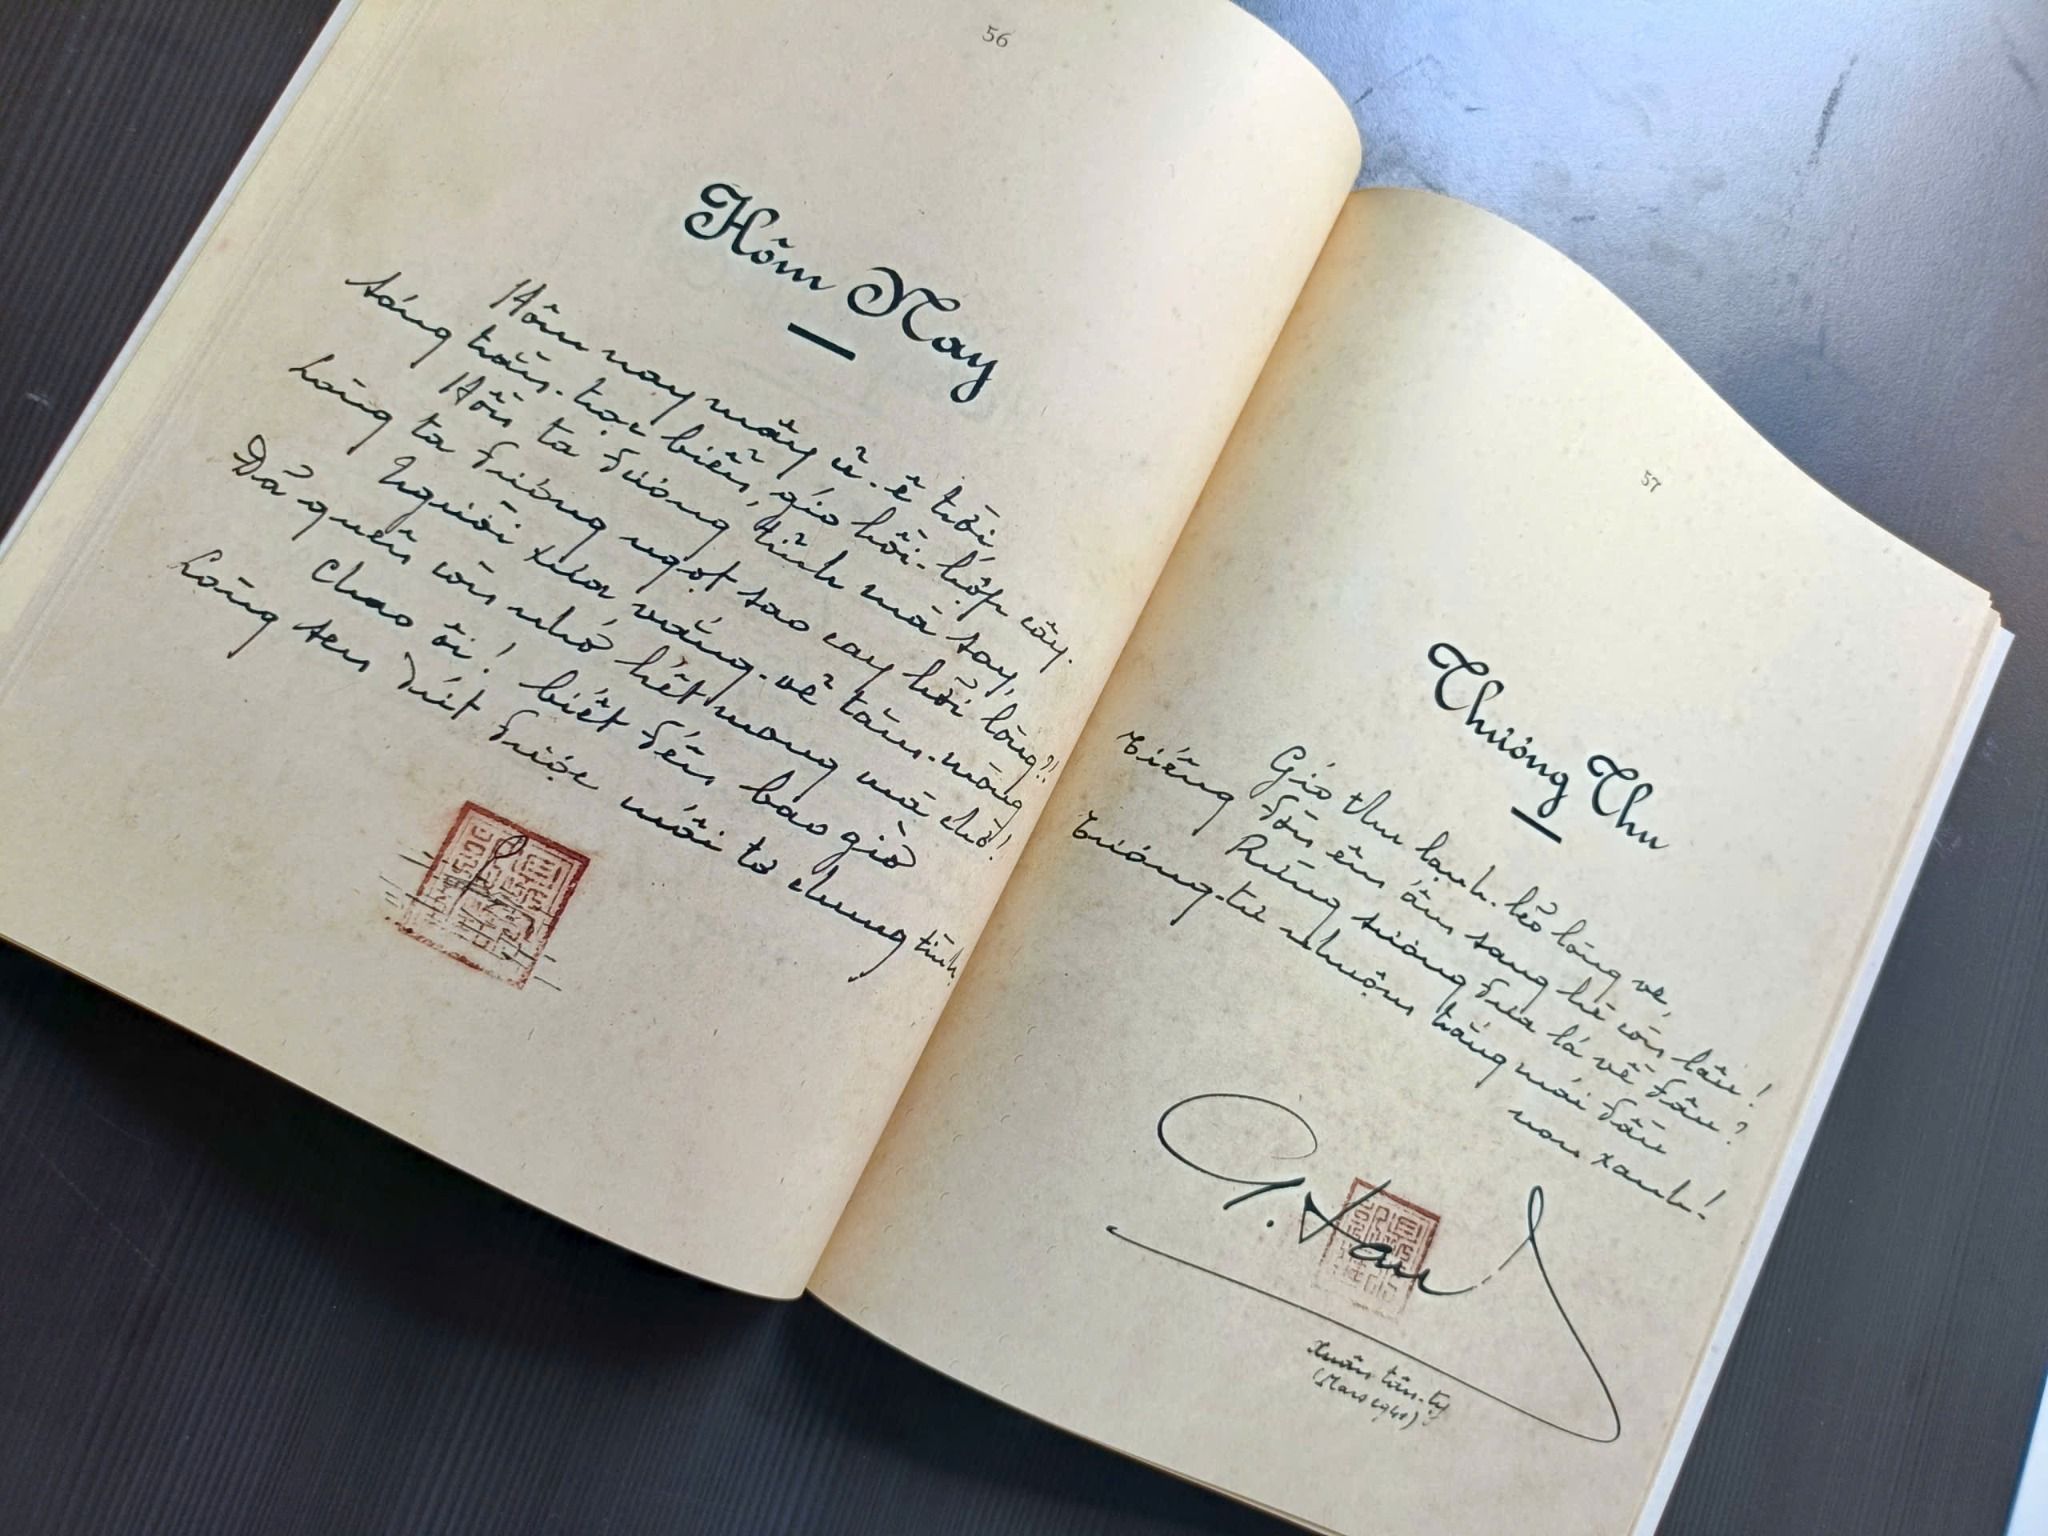 56
Hôm Nay
Hôm nay mây ủ-ê trôi,
sóng trầm-trọc biển, gió hồi-hộp cây.
Hồn ta đương tỉnh mà say,
lòng ta đương ngọt sao cay hỡi lòng?!
Người xưa vắng-vẻ tăm-mòng
Đã quên còn nhớ hết mong mà chờ!
Chao ôi! biết đến bao giờ
lòng sen dứt được mối tơ chung tình
57
Thương Thu
Gió thu lạnh-lẽo lòng ve,
Tiếng đàn êm ấm sang hè còn lâu!
Rừng sương đưa lá về đâu?
Tương-tư nhuộm trắng mái đầu
non xanh!
G. Xan
Xuân tân-tỵ
(Mars 1941)